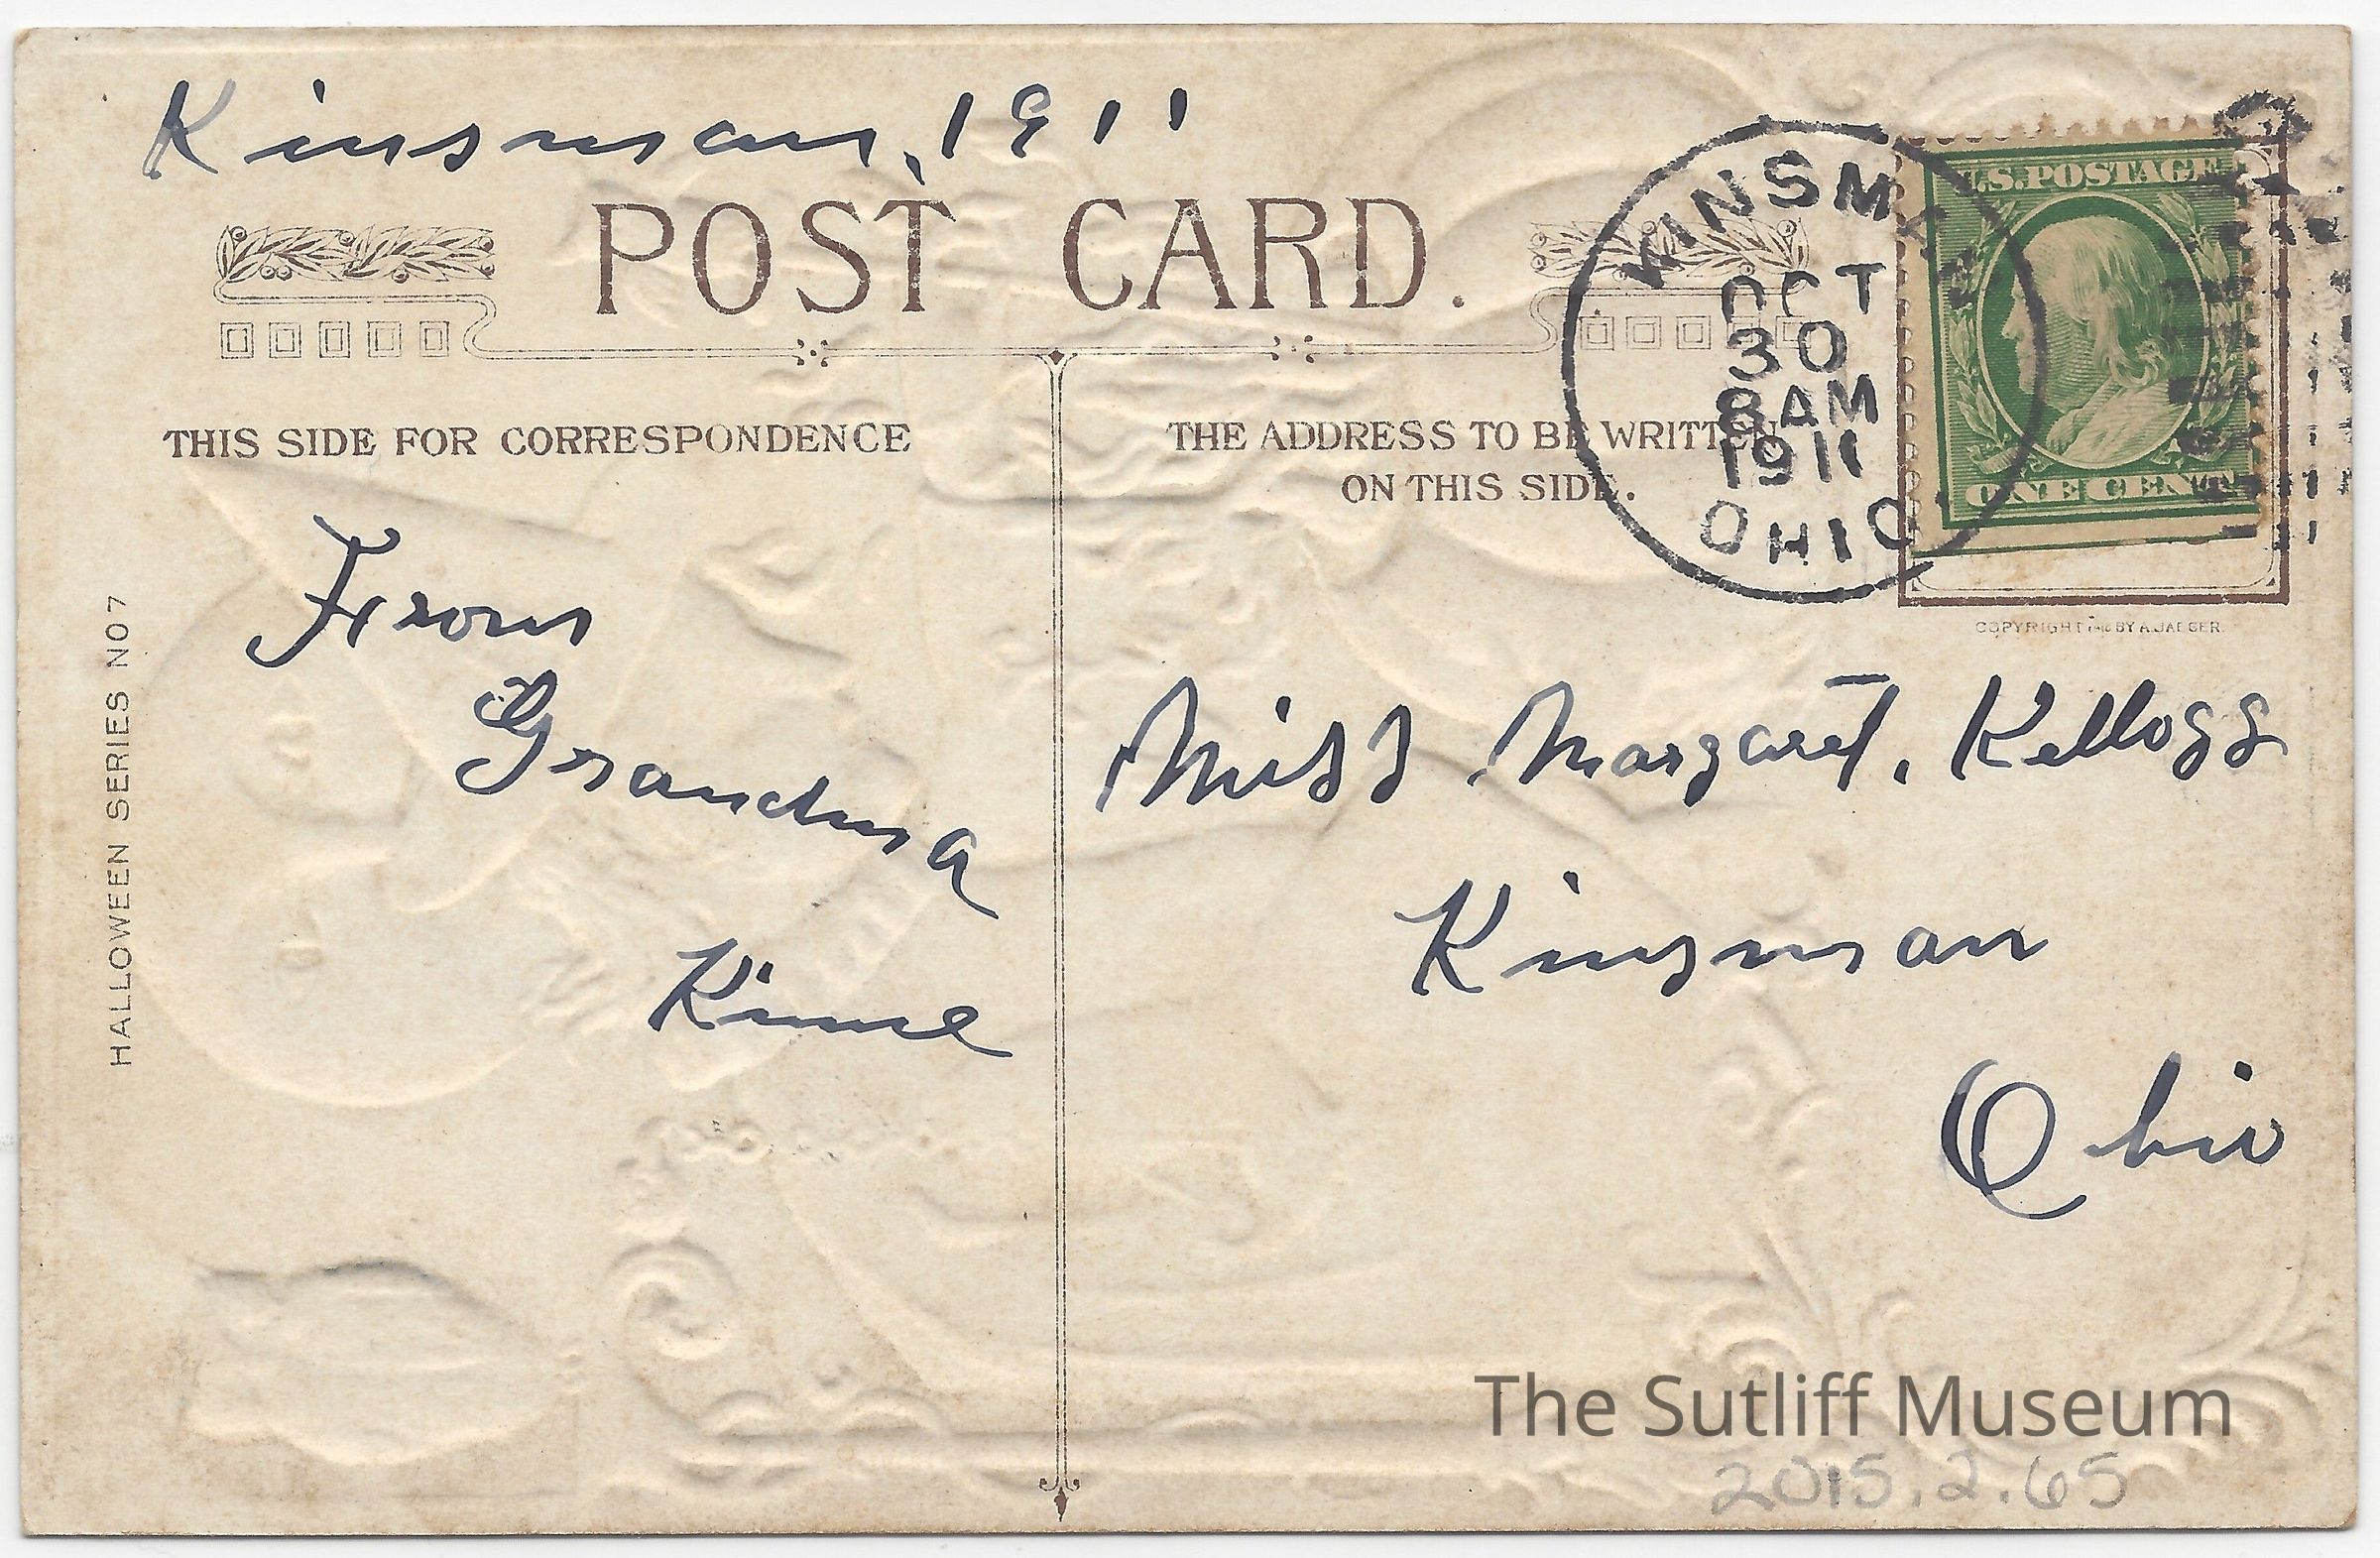 Kinsman, 1911
POST CARD.
KINSMAN
OCT
30
8 AM
1911
OHIO
U.S. POSTAGE
ONE CENT
THIS SIDE FOR CORRESPONDENCE
THE ADDRESS TO BE WRITTEN
ON THIS SIDE.
COPYRIGHT BY A. JAEGER.
HALLOWEEN SERIES NO 7
From
Grandma
Kinne
Miss Margaret. Kellogg
Kinsman
Ohio
The Sutliff Museum
2015.2.65